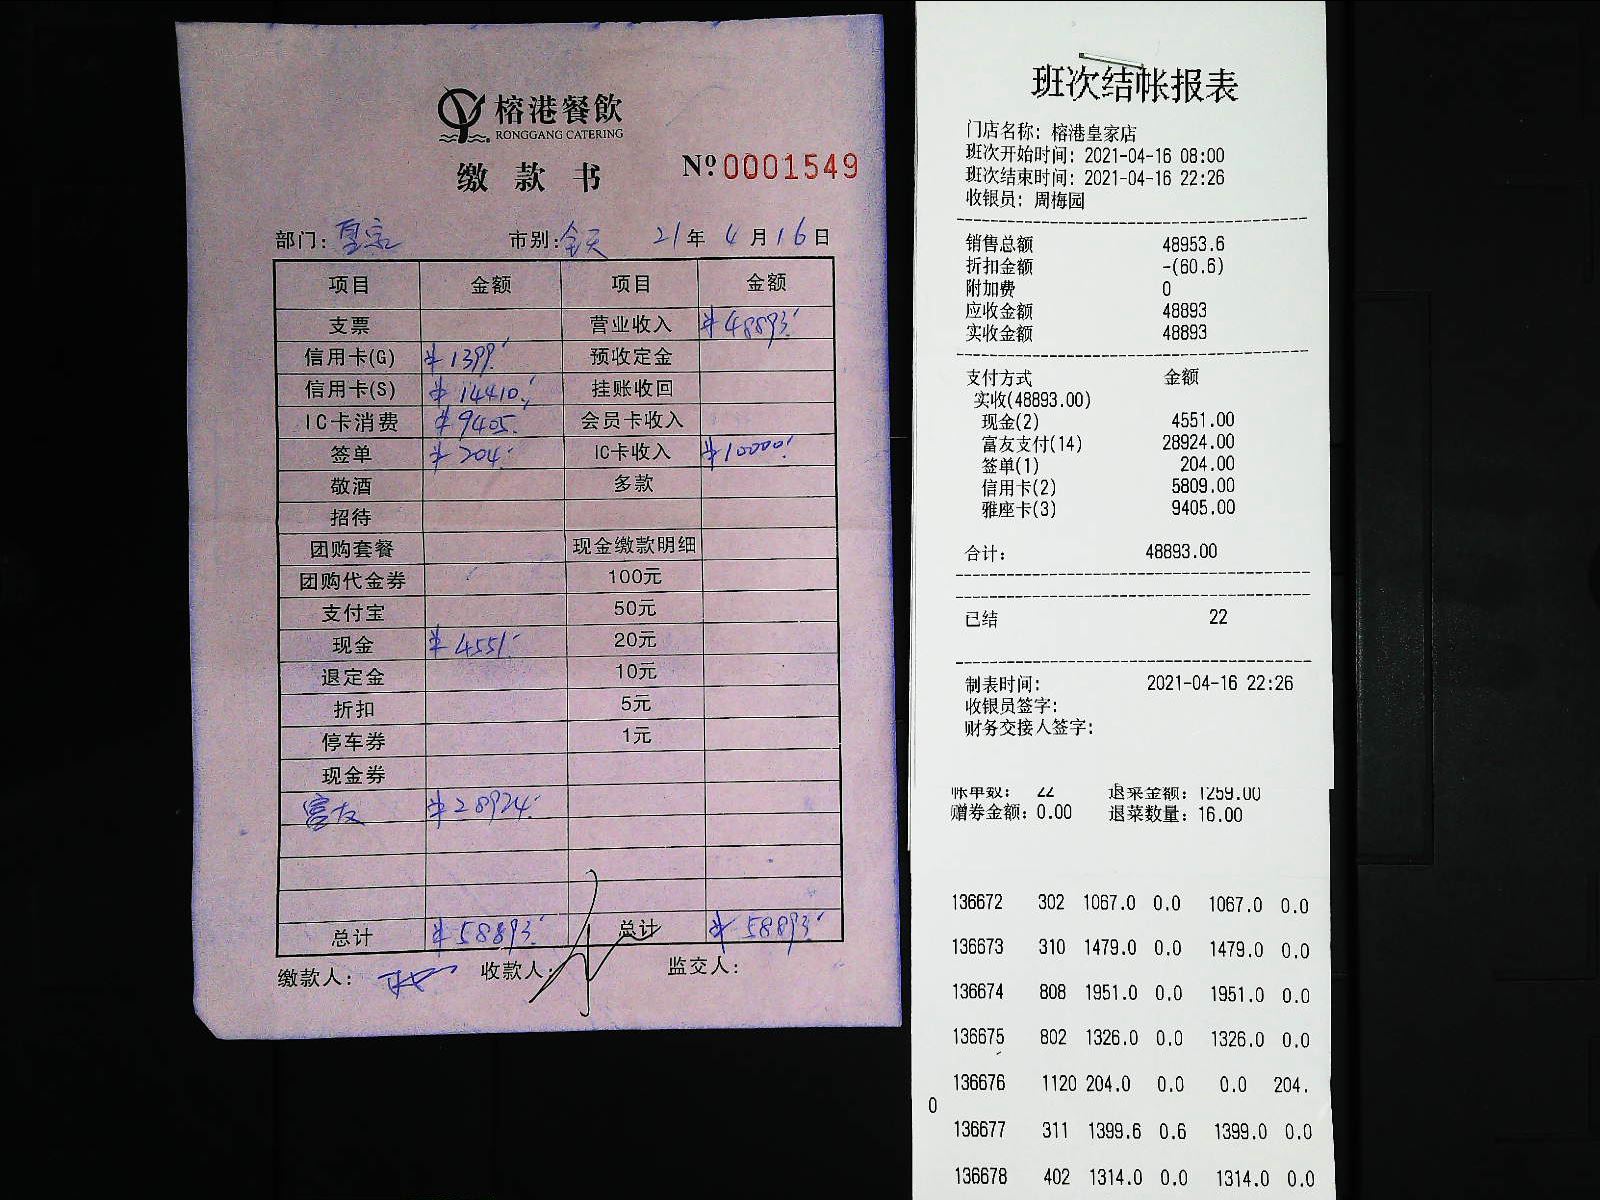 榕港餐飲
RONGGANG CATERING
缴款书
№0001549
部门：皇家 市别：全天 21年4月16日
项目 金额 项目 金额
支票 营业收入 ¥48893.
信用卡(G) ¥1399. 预收定金
信用卡(S) ¥14410. 挂账收回
IC卡消费 ¥9405. 会员卡收入
签单 ¥204. IC卡收入 ¥10000.
敬酒 多款
招待
团购套餐 现金缴款明细
团购代金券 100元
支付宝 50元
现金 ¥4551. 20元
退定金 10元
折扣 5元
停车券 1元
现金券
富友 ¥28924.
总计 ¥58893. 总计 ¥58893.
缴款人： 收款人： 监交人：
班次结帐报表
门店名称：榕港皇家店
班次开始时间：2021-04-16 08:00
班次结束时间：2021-04-16 22:26
收银员：周梅园
销售总额 48953.6
折扣金额 -(60.6)
附加费 0
应收金额 48893
实收金额 48893
支付方式 金额
实收(48893.00)
现金(2) 4551.00
富友支付(14) 28924.00
签单(1) 204.00
信用卡(2) 5809.00
雅座卡(3) 9405.00
合计： 48893.00
已结 22
制表时间： 2021-04-16 22:26
收银员签字：
财务交接人签字：
帐单数： 22 退菜金额：1259.00
赠券金额：0.00 退菜数量：16.00
136672 302 1067.0 0.0 1067.0 0.0
136673 310 1479.0 0.0 1479.0 0.0
136674 808 1951.0 0.0 1951.0 0.0
136675 802 1326.0 0.0 1326.0 0.0
136676 1120 204.0 0.0 0.0 204.
0
136677 311 1399.6 0.6 1399.0 0.0
136678 402 1314.0 0.0 1314.0 0.0